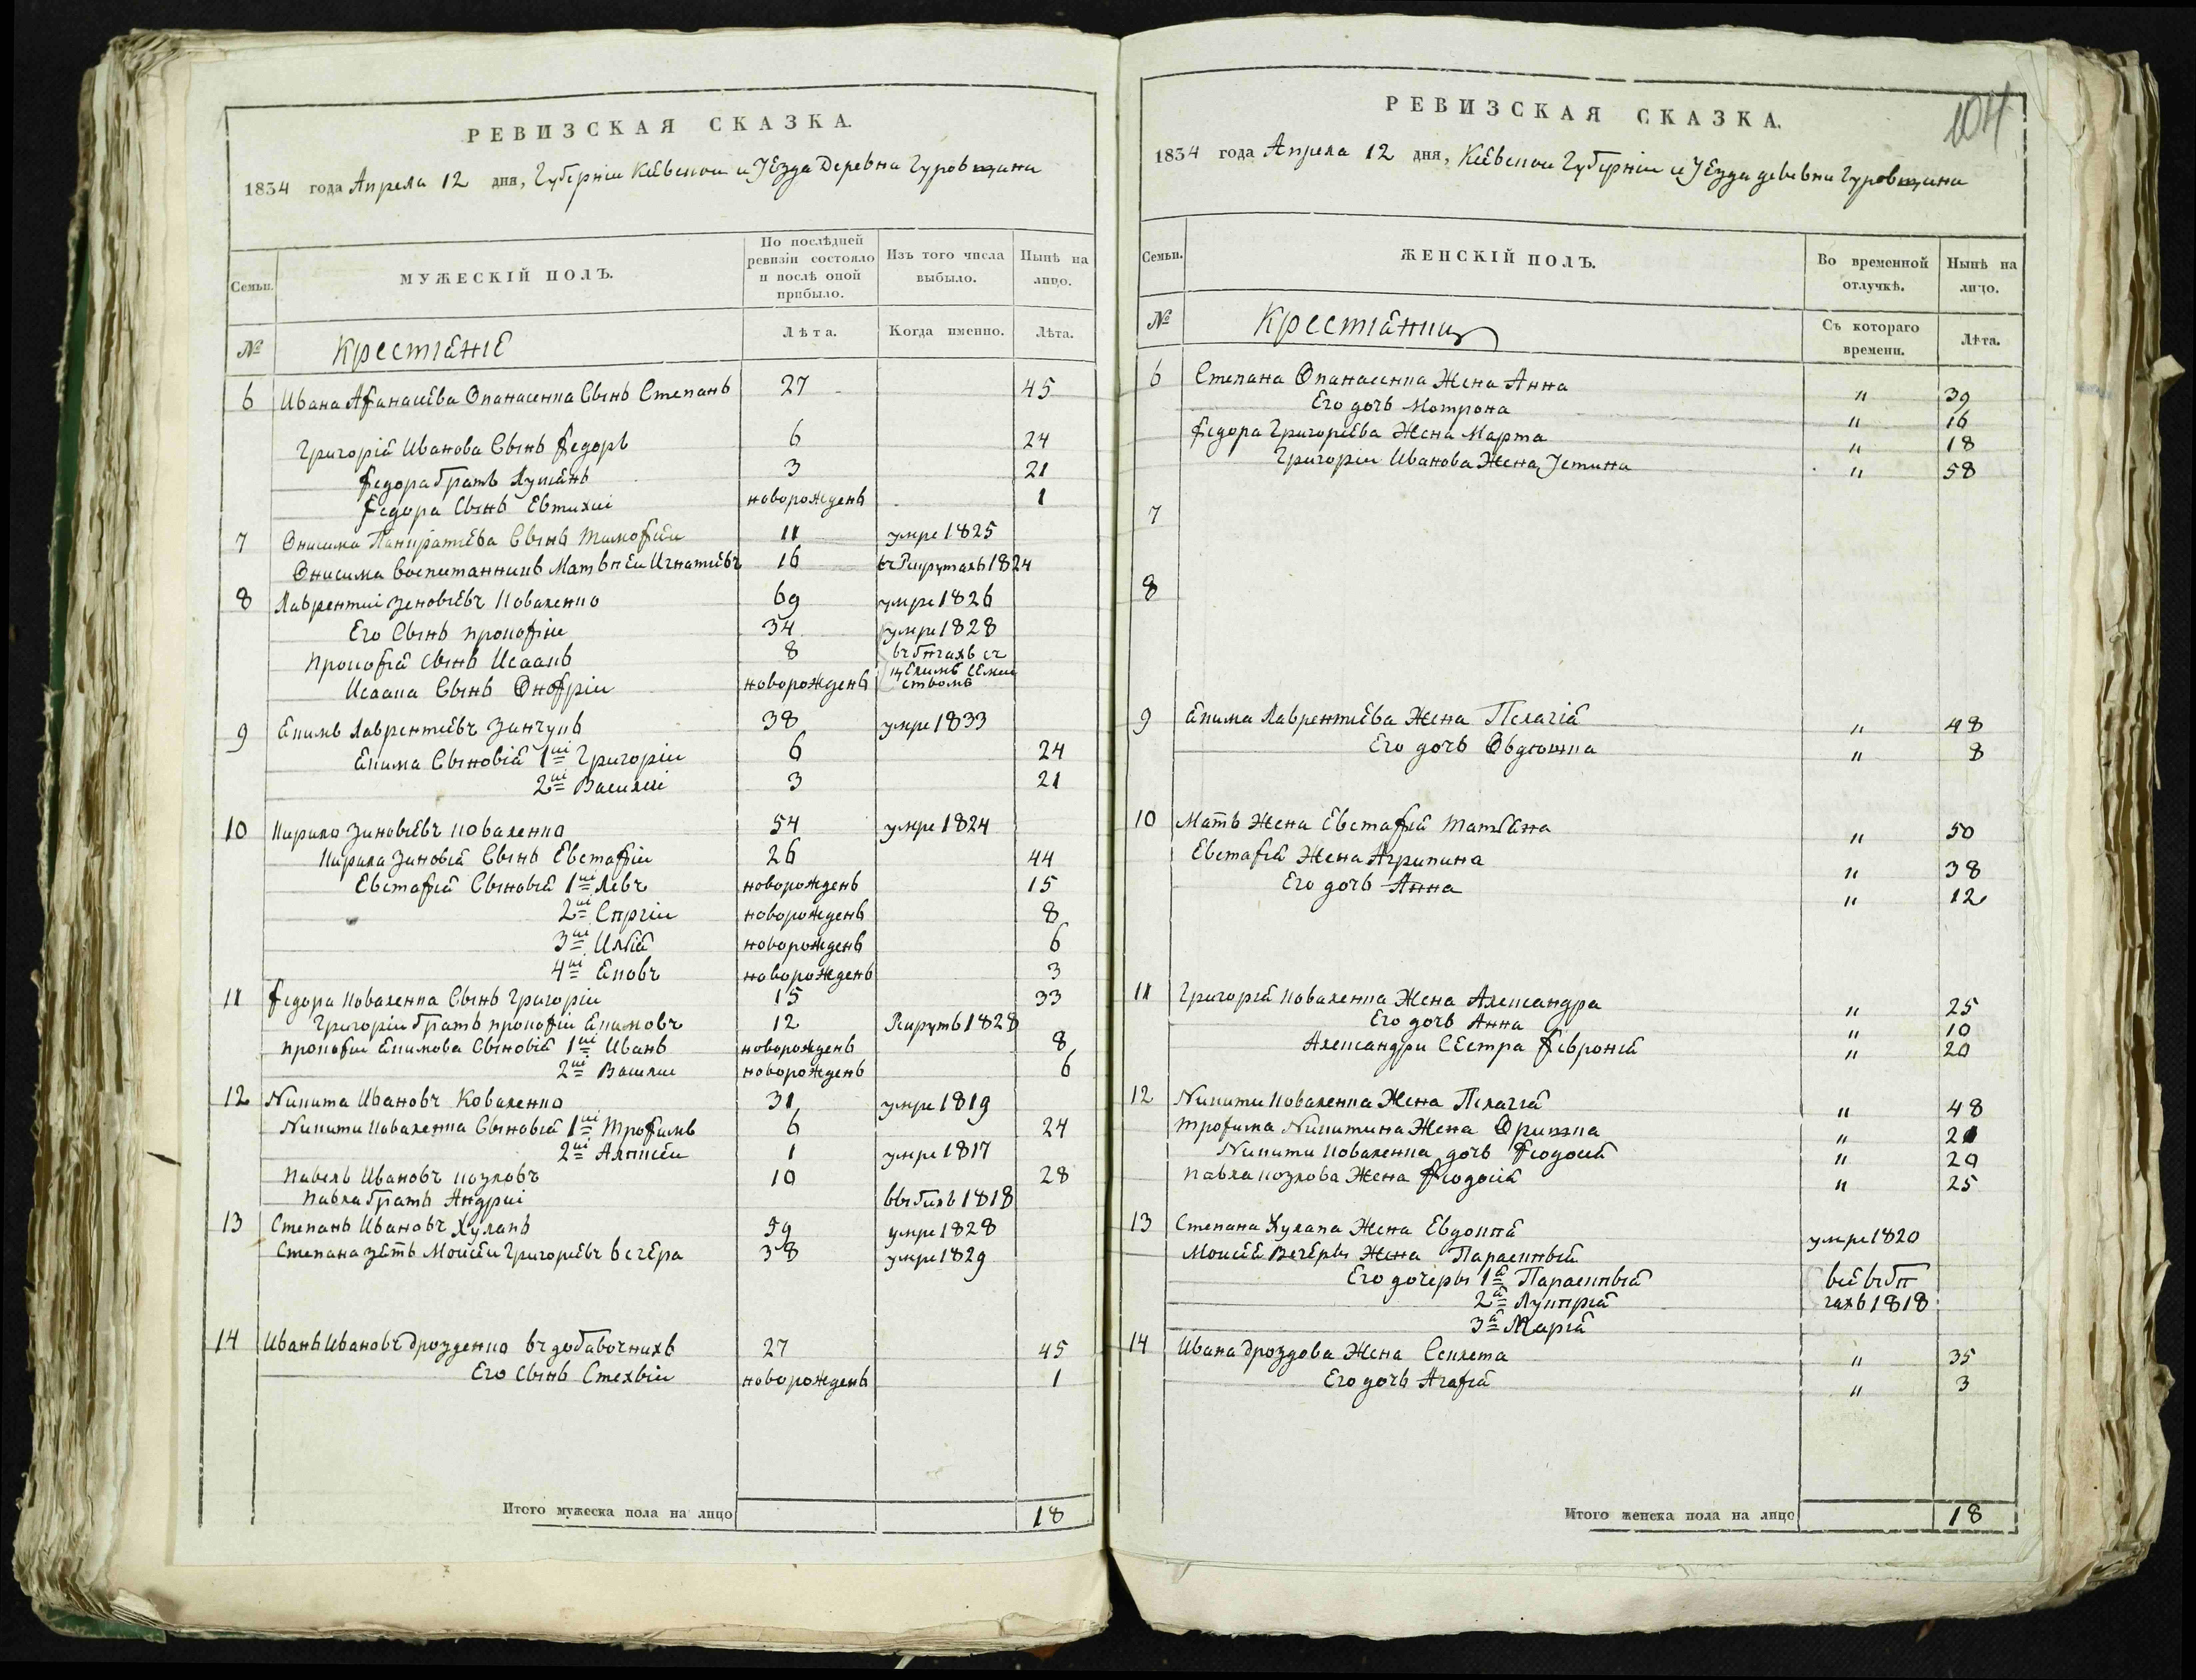 РЕВИЗСКАЯ СКАЗКА.
1834 года Апреля 12 дня, Губерніи Кіевскои и Уезда Деревни Гуровщини
Семьи.
МУЖЕСКІЙ ПОЛЪ.
По послѣдней ревизіи состояло и послѣ оной прибыло.
Изъ того числа выбыло.
Нынѣ на лицо.
№
Крестяне
Лѣта.
Когда именно.
Лѣта.
6 Ивана Афанасиева Опанасенка Сынъ Степанъ 27 45
Григорія Иванова Сынъ Федоръ 6 24
Федора братъ Лукянъ 3 21
Федора Сынъ Евтихии новорожденъ 1
7 Онисима Панкратиева Сынъ Тимофей 11 умре 1825
Онисима воспитанникъ Матвпеи Игнатиевъ 16 въ Рекрутахъ 1824
8 Лаврентии Зеновиевъ Коваленко 69 умре 1826
Его Сынъ Прокофіи 34 умре 1828
Прокофія Сынъ Исаакъ 8 въ бпгахъ съ
Исаака Сынъ Онофріи новорожденъ целимъ Семи ствомъ
9 Екимъ Лаврентиевъ Зинчукъ 38 умре 1833
Екима Сыновія 1ии Григоріи 6 24
2ии Василіи 3 21
10 Кирило Зиновиевъ Коваленко 54 умре 1824
Кирила Зиновія Сынъ Евстафіи 26 44
Евстафія Сыновія 1ии Левъ новорожденъ 15
2ии Сергіи новорожденъ 8
3ии Илія новорожденъ 6
4ии Яковъ новорожденъ 3
11 Федора Коваленка Сынъ Григоріи 15 33
Григоріи братъ Прокофіи Екимовъ 12 Рикрутъ 1828
Прокофіи Екимова Сыновія 1ии Иванъ новорожденъ 8
2ии Василии новорожденъ 6
12 Никита Ивановъ Коваленко 31 умре 1819
Никити Коваленка Сыновія 1ии Трофимъ 6 24
2ии Алпксіи 1 умре 1817
Павелъ Ивановъ Козловъ 10 28
Павла братъ Андрии выбилъ 1818
13 Степанъ Ивановъ Кулакъ 59 умре 1828
Степана зять Моисеи Григориевъ Вечера 38 умре 1829
14 Иванъ Ивановъ Дрозденко въ добавочнихъ 27 45
Его Сынъ новорожденъ 1
Итого мужеска пола на лицо 18
104
РЕВИЗСКАЯ СКАЗКА.
1834 года Апреля 12 дня, Кіевскои Губерніи и Уезда деревни Гуровщини
Семьи.
ЖЕНСКІЙ ПОЛЪ.
Во временной отлучкѣ.
Нынѣ на лицо.
№
Крестяниц
Съ котораго времени.
Лѣта.
6 Степана Опанасенка Жена Анна " 39
Его дочь Мотрона " 16
Федора Григориева Жена Марта " 18
Григоріи Иванова Жена Устина " 58
7
8
9 Екима Лаврентиева Жена Пелагія " 48
Его дочь Овдюшка " 8
10 Мать Жена Евстафія Татьяна " 50
Евстафія Жена Агрипина " 38
Его дочь Анна " 12
11 Григорія Коваленка Жена Александра " 25
Его дочь Анна " 10
Александри Сестра Февронія " 20
12 Никити Коваленка Жена Пелагія " 48
Трофима Никитина Жена Оришка " 21
Никити Коваленка дочь Феодосія " 20
Павла Козлова Жена Феодосія " 25
13 Степана Кулака Жена Евдокия умре 1820
Моисея Вечеры Жена Парасквия
Его дочеры 1я Парасквия всѣ въ бп
2я Лукпрія гахъ 1818
3я Марія
14 Ивана Дроздова Жена Секлета " 35
Его дочь Агафія " 3
Итого женска пола на лицо 18